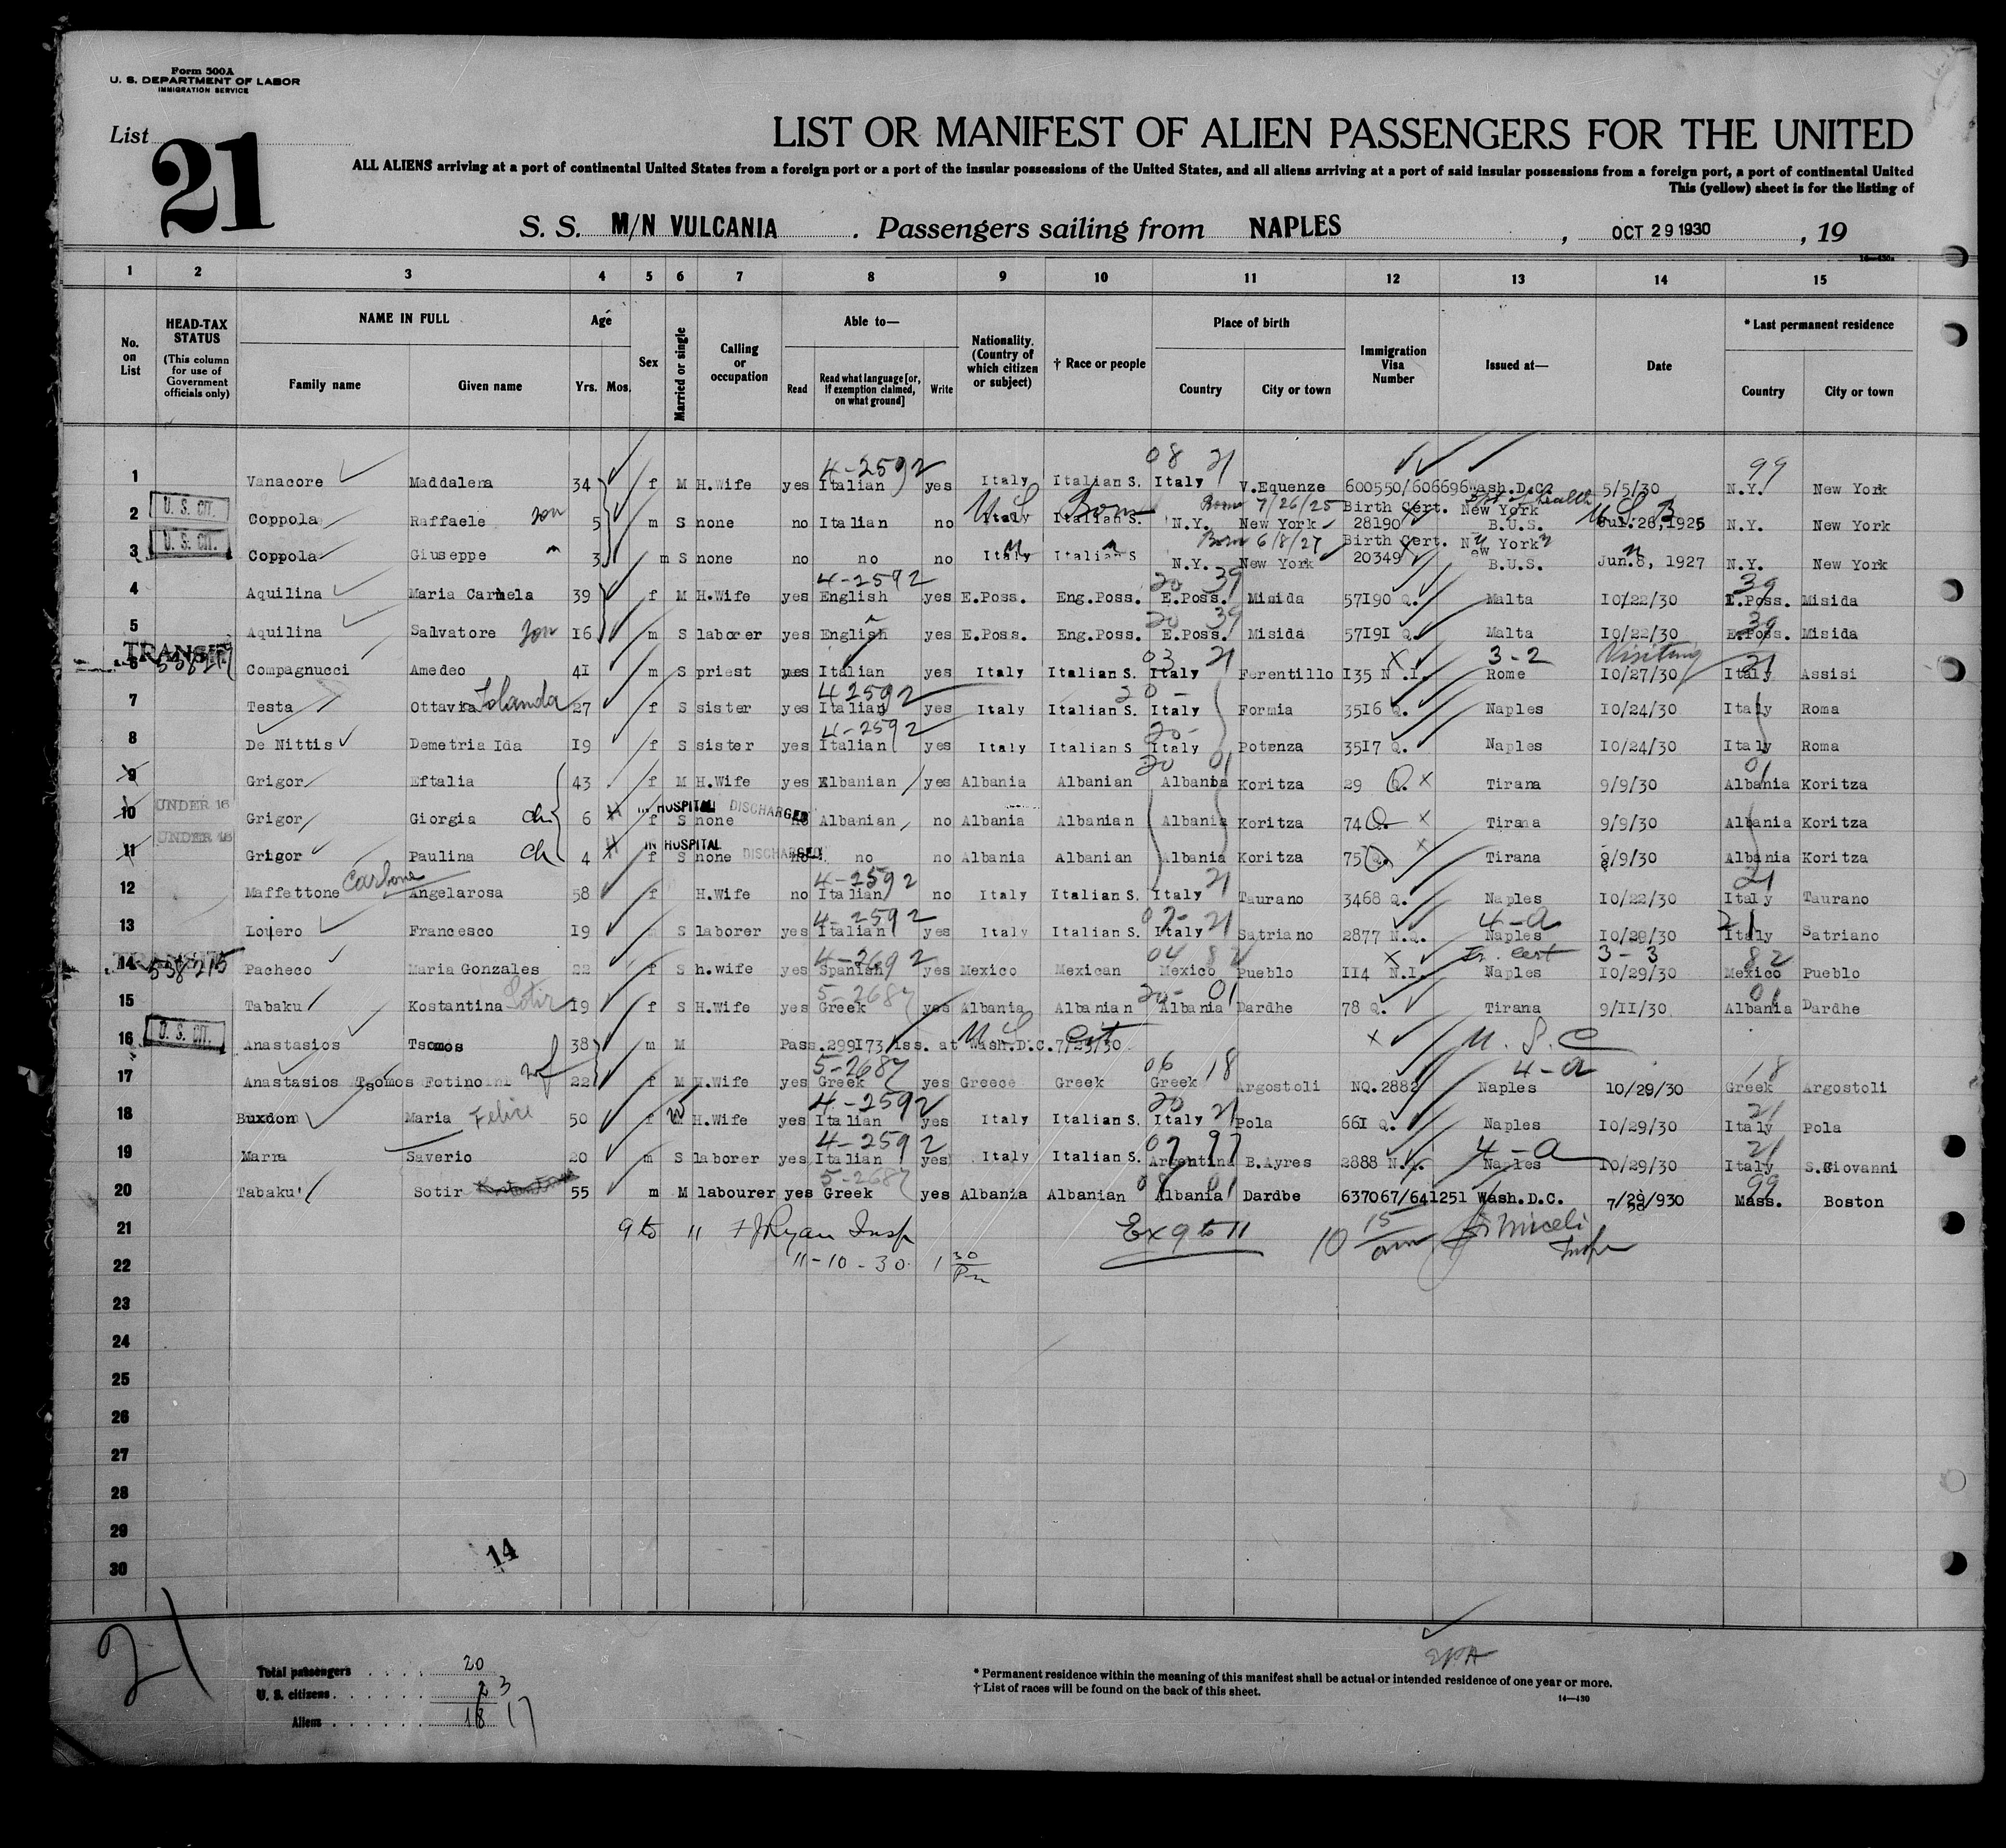 Form 500A
U. S. DEPARTMENT OF LABOR
IMMIGRATION SERVICE
List 21
LIST OR MANIFEST OF ALIEN PASSENGERS FOR THE UNITED
ALL ALIENS arriving at a port of continental United States from a foreign port or a port of the insular possessions of the United States, and all aliens arriving at a port of said insular possessions from a foreign port, a port of continental United
This (yellow) sheet is for the listing of
S. S. M/N VULCANIA . Passengers sailing from NAPLES , OCT 29 1930 , 19
1 2 3 4 5 6 7 8 9 10 11 12 13 14 15
No. on List
HEAD-TAX STATUS (This column for use of Government officials only)
NAME IN FULL Family name Given name
Age Yrs. Mos.
Sex
Married or single
Calling or occupation
Able to— Read Read what language [or, if exemption claimed, on what ground] Write
Nationality. (Country of which citizen or subject)
† Race or people
Place of birth Country City or town
Immigration Visa Number
Issued at—
Date
* Last permanent residence Country City or town
4-2592 08 21 99
1 Vanacore Maddalena 34 f M H.Wife yes Italian yes Italy Italian S. Italy V.Equenze 600550/606696 Wash.D.C. 5/5/30 N.Y. New York
U. S. CIT. Born 7/26/25 Birth Cert. New York
2 Coppola Raffaele son 5 m S none no Italian no Italy Italian S. N.Y. New York 28190 B.U.S. Jul.26,1925 N.Y. New York
U. S. CIT. Born 6/8/27 Birth Cert. New York
3 Coppola Giuseppe 3 m S none no no no Italy Italian S N.Y. New York 20349 B.U.S. Jun.8, 1927 N.Y. New York
4-2592 20 39 39
4 Aquilina Maria Carmela 39 f M H.Wife yes English yes E.Poss. Eng.Poss. E.Poss. Misida 57190 Q. Malta 10/22/30 E.Poss. Misida
20 39 39
5 Aquilina Salvatore son 16 m S laborer yes English yes E.Poss. Eng.Poss. E.Poss. Misida 57191 Q. Malta 10/22/30 E.Poss. Misida
TRANSIT 03 21 3-2 Visiting 21
6 Compagnucci Amedeo 41 m S priest yes Italian yes Italy Italian S. Italy Ferentillo 135 N.I. Rome 10/27/30 Italy Assisi
4-2592 20 -
7 Testa Ottavia Iolanda 27 f S sister yes Italian yes Italy Italian S. Italy Formia 3516 Q. Naples 10/24/30 Italy Roma
4-2592 20-
8 De Nittis Demetria Ida 19 f S sister yes Italian yes Italy Italian S Italy Potenza 3517 Q. Naples 10/24/30 Italy Roma
20 01 01
9 Grigor Eftalia 43 f M H.Wife yes Albanian yes Albania Albanian Albania Koritza 29 Q. Tirana 9/9/30 Albania Koritza
UNDER 16 IN HOSPITAL DISCHARGED
10 Grigor Giorgia ch 6 f S none no Albanian no Albania Albanian Albania Koritza 74 Q. Tirana 9/9/30 Albania Koritza
UNDER 16 IN HOSPITAL DISCHARGED
11 Grigor Paulina ch 4 f S none no no no Albania Albanian Albania Koritza 75 Q. Tirana 9/9/30 Albania Koritza
Carbone 4-2592 21 21
12 Maffettone Angelarosa 58 f H.Wife no Italian no Italy Italian S. Italy Taurano 3468 Q. Naples 10/22/30 Italy Taurano
4-2592 07- 21 4-a 21
13 Loiero Francesco 19 S laborer yes Italian yes Italy Italian S. Italy Satriano 2877 N.Q. Naples 10/29/30 Italy Satriano
538215 4-2692 04 82 Tr. cert 3-3 82
14 Pacheco Maria Gonzales 22 f S h.wife yes Spanish yes Mexico Mexican Mexico Pueblo 114 N.I. Naples 10/29/30 Mexico Pueblo
5-2687 20- 01 01
15 Tabaku Kostantina Sotir 19 f S H.Wife yes Greek yes Albania Albanian Albania Dardhe 78 Q. Tirana 9/11/30 Albania Dardhe
U. S. CIT. U S Cit U. S. C
16 Anastasios Tsomos 38 m M Pass.299173 iss. at Wash.D.C.7/23/30
5-2687 06 18 4-a 18
17 Anastasios Tsomos Fotino wf 22 f M H.Wife yes Greek yes Greece Greek Greek Argostoli NQ.2882 Naples 10/29/30 Greek Argostoli
4-2592 20 21 21
18 Buxdon Maria Felice 50 f W H.Wife yes Italian yes Italy Italian S. Italy Pola 661 Q. Naples 10/29/30 Italy Pola
4-2592 07 97 4-a 21
19 Marra Saverio 20 m S laborer yes Italian yes Italy Italian S. Argentina B.Ayres 2888 N.Q. Naples 10/29/30 Italy S.Giovanni
5-2687 01 99
20 Tabaku Sotir 55 m M labourer yes Greek yes Albania Albanian Albania Dardbe 637067/641251 Wash.D.C. 7/29/930 Mass. Boston
21 9 to 11 Ryan Insp Ex 9 to 11 10 15 am Miceli Insp
22 11-10-30 1 30 Pm
23
24
25
26
27
28
29
30
14
21
Total passengers 20
U. S. citizens 2 3
Aliens 18 17
* Permanent residence within the meaning of this manifest shall be actual or intended residence of one year or more.
† List of races will be found on the back of this sheet.
14—430